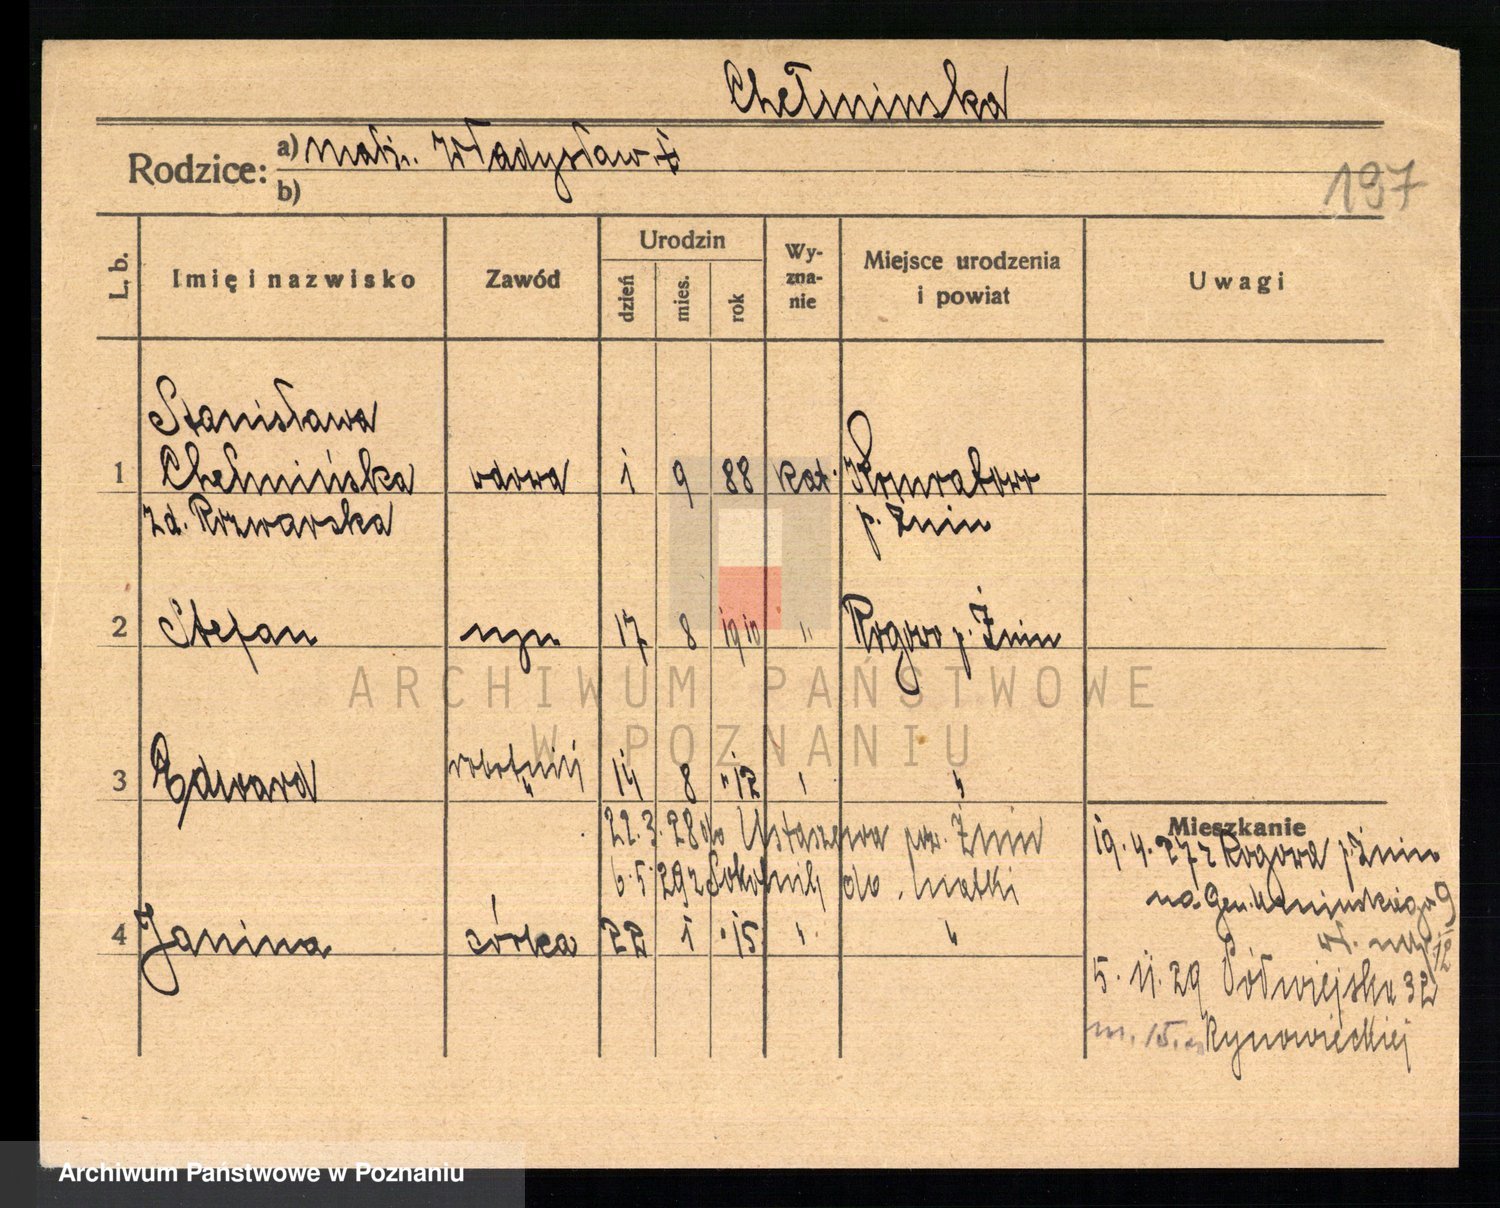 Chełminska
Rodzice: a) małż. Władysław †
b)
197
L. b. Imię i nazwisko Zawód Urodzin dzień mies. rok Wy-zna-nie Miejsce urodzenia i powiat Uwagi
Stanisława
1 Chełmińska wdowa 1 9 88 kat.
zd. Rozwarska p. Żnin
2 Stefan syn 17 8 1910 " Rogowo p. Żnin
3 Edward robotnik 14 8 " 12 " "
22.3.28 do Ustaszewa pow. Żnin
6.5.29 z do matki
4 Janina córka 22 1 " 15 " "
Mieszkanie
19.4.27 z Rogowa p. Żnin
na Gen. 9
12
5.11.29 Półwiejska 32
m. 15. u
ARCHIWUM PAŃSTWOWE
W POZNANIU
Archiwum Państwowe w Poznaniu